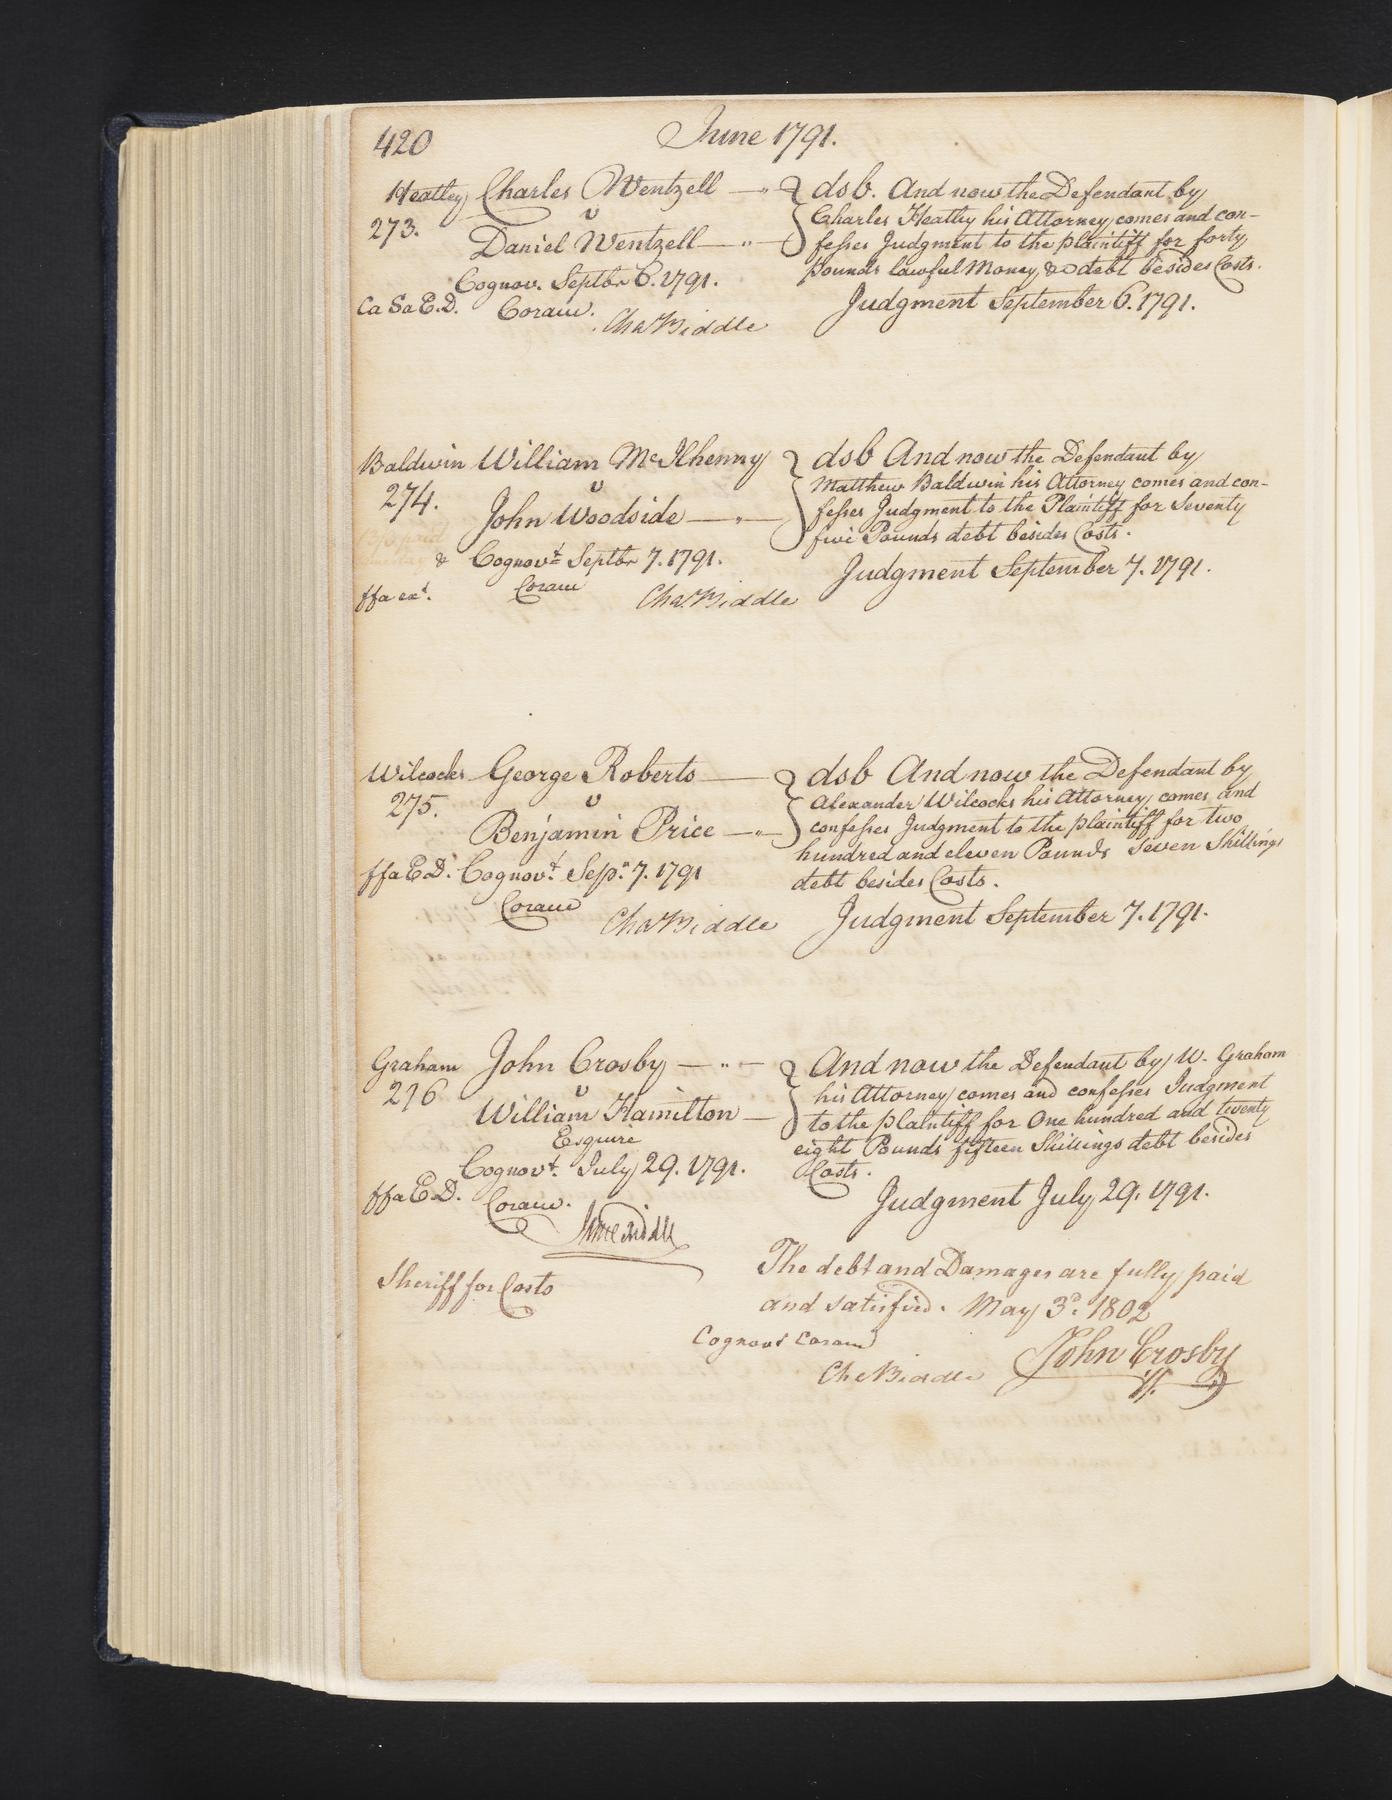 420
June 1791.
Heatley Charles Wentzell
273. v
Daniel Wentzell
Cognov. Septbr 6. 1791.
Ca Sa E.D. Coram.
Cha Biddle
dsb. And now the Defendant by
Charles Heatley his Attorney comes and con-
fesses Judgment to the plaintiff for forty
pounds lawful Money &c debt besides Costs.
Judgment September 6. 1791.
Baldwin William McIlhenny
274. v
John Woodside
& Cognovt Septbr 7. 1791.
ffa exd. Coram
Cha Biddle
dsb And now the Defendant by
Matthew Baldwin his Attorney comes and con-
fesses Judgment to the Plaintiff for Seventy
five Pounds debt besides Costs.
Judgment September 7. 1791.
Wilcocks George Roberts
275. v
Benjamin Price
ffa E.D. Cognovt. Sepr 7. 1791
Coram
Cha Biddle
dsb And now the Defendant by
Alexander Wilcocks his Attorney comes and
confesses Judgment to the plaintiff for two
hundred and eleven Pounds Seven Shillings
debt besides Costs.
Judgment September 7. 1791.
Graham John Crosby
276 v
William Hamilton
Esquire
Cognovt. July 29. 1791.
ffa E.D. Coram.
Sheriff for Costs
And now the Defendant by W. Graham
his Attorney comes and confesses Judgment
to the plaintiff for One hundred and twenty
eight Pounds fifteen Shillings debt besides
Costs.
Judgment July 29. 1791.
The debt and Damages are fully paid
and satisfied. May 3d. 1802
Cognovt Coram
Cha Biddle
John Crosby